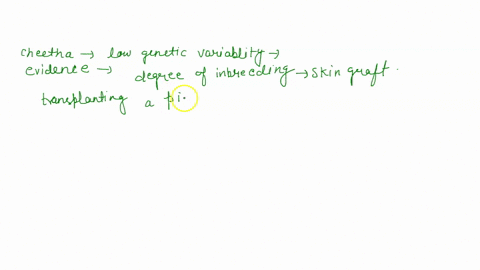 cheetha → low genetic variablity →
evidence → degree of inbreeding → skin graft.
transplanting a pi